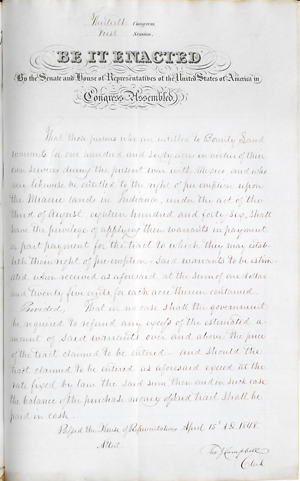 Thirtieth Congress
First Session,
BE IT ENACTED
By the Senate and House of Representatives of the United States of America in
Congress Assembled,
That those persons who are entitled to Bounty Land
warrants (a one hundred and sixty acres in virtue of their
own services during the present war with Mexico and who
are likewise be entitled to the right of pre-emption upon
the Miami lands in Indiana, under the act of the
third of August, eighteen hundred and forty six, shall
have the privilege of applying their warrants in payment
or part payment for the tract to which they may estab-
lish their right of pre-emption. Said warrants to be estim-
ated when received as aforesaid at the sum of one dollar
and twenty five cents for each acre therein contained.
Provided, That in no case shall the government
be required to refund any excess of the estimated a-
mount of said warrants over and above the price
of the tract claimed to be entered - and should the
tract claimed to be entered as aforesaid exceed at the
rate fixed by law the said sum, then and in such case
the balance of the purchase money of said tract shall be
paid in cash.
Passed the House of Representatives April 15th 1848.
Attest.
Tho J Campbell
Clerk